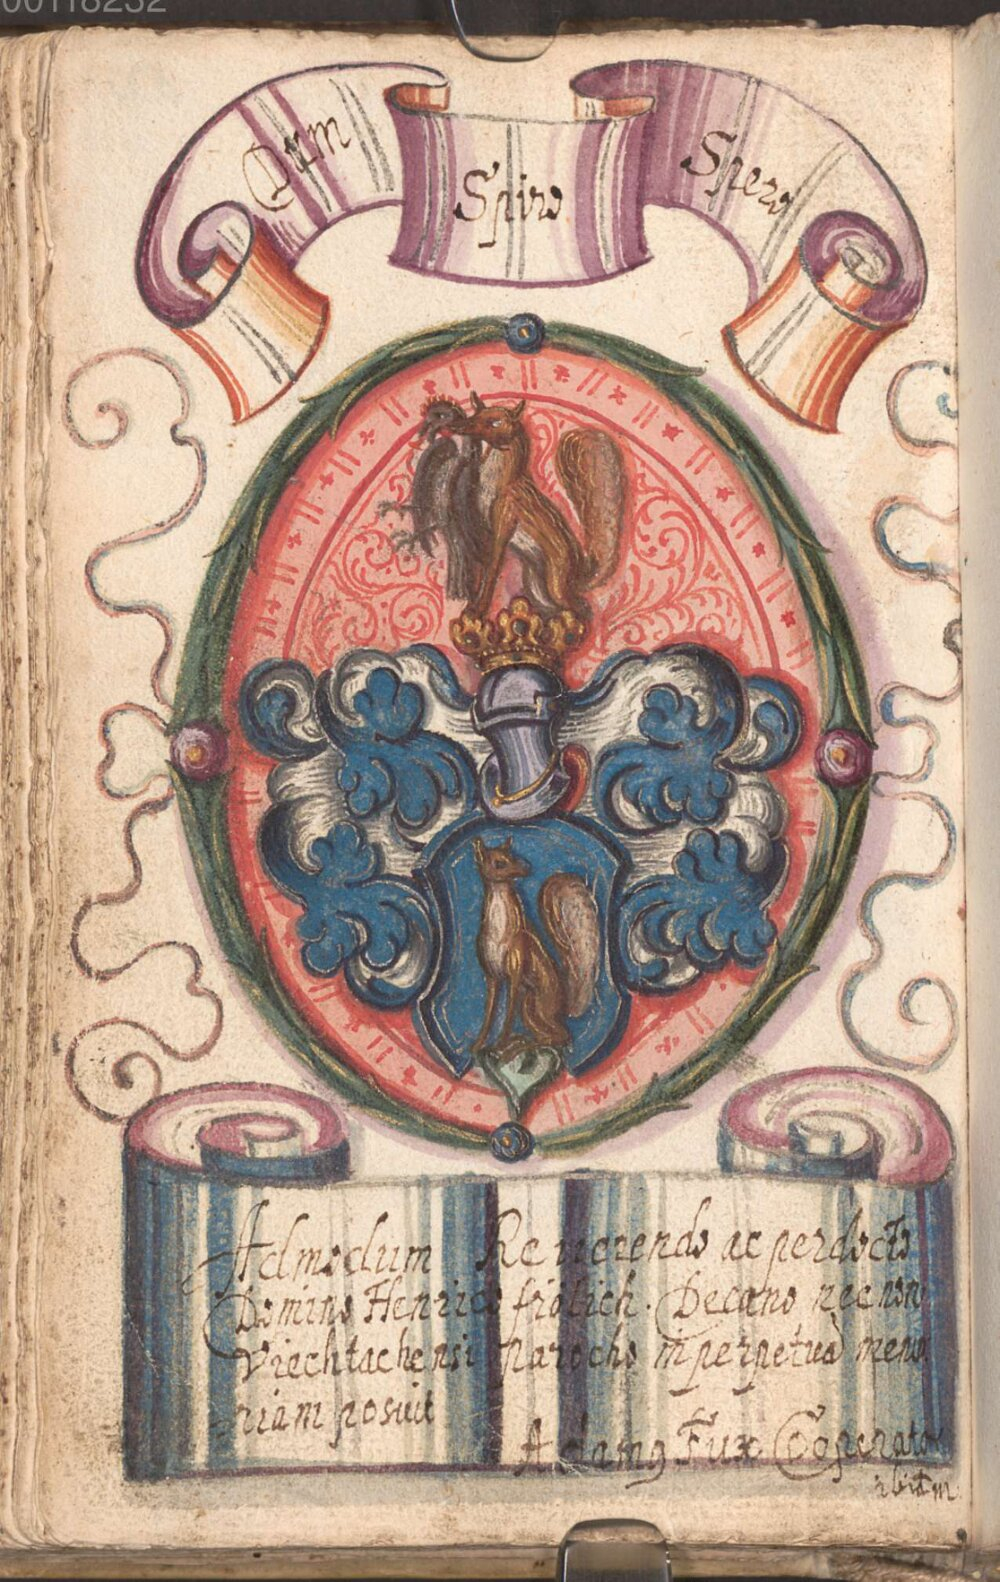 00118232
Dum
Spiro
Spero
Admodum Reuerendo ac perdocto
Domino Henrico frölich. Decano necnon
Viechtachensi Parocho in perpetuā memo
riam posuit
Adamg Fux Cooperator
ibidem